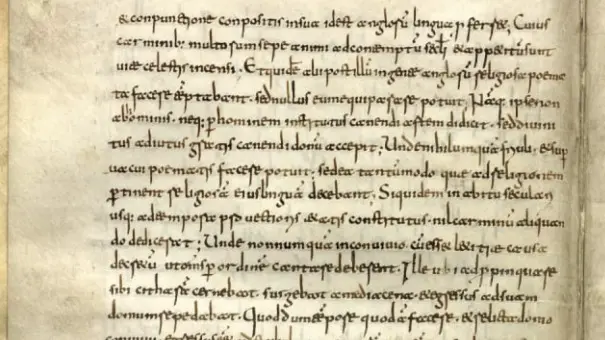 & conpunctione conpositis in sua id est anglorū lingua pferret, Cuius
carminib; multorum sepe animi ad contemptū secli & appetitum sunt
uitae celestis incensi. Et quidē alii post illū in gente anglorū religiosa poema
ta facere temptabant. sed nullus eum equiparare potuit; Nāq; ipse non
ab hominib. neq; p hominem institutus canendi artem didicit. sed diuini
tus adiutus gratis canendi donū accepit; Unde nihil umquā friuoli. & sup
uacui poematis facere potuit. sed ea tantummodo que ad religionem
pertinent religiosā eius linguā decebant; Siquidem in abitu seculari
usq; ad tempora prouectioris aetatis constitutus. nil carminū aliquan
do dedicerat; Unde non numquā in conuiuio. cū esset letitiae causa
decretū ut omnes p ordinē cantare deberent. Ille ubi adppinquare
sibi citharā cernebat. surgebat a media cena. & egressus ad suam
domum repedabat. Quod dum tempore quodā faceret. & relicta domo